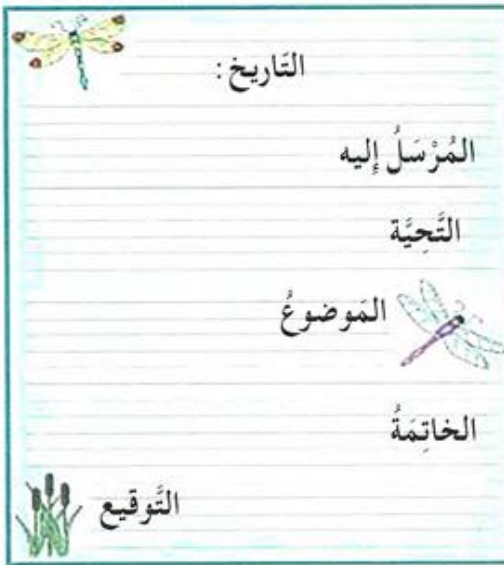 التَّاريخ :
المُرْسَلُ إِليه
التَّحِيَّة
المَوضوعُ
الخاتِمَةُ
التَّوقيع